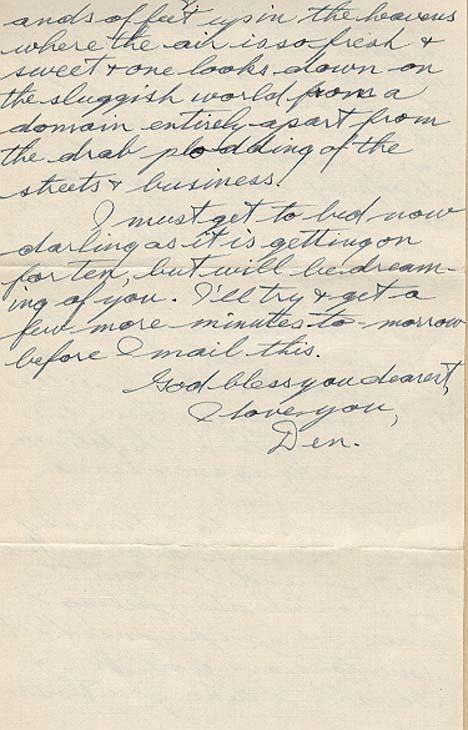 ands of feet up in the heavens
where the air is so fresh &
sweet & one looks down on
the sluggish world from a
domain entirely apart from
the drab plodding of the
streets & business.
I must get to bed now
darling as it is getting on
for ten, but will be dream-
ing of you. I'll try & get a
few more minutes to-morrow
before I mail this.
God bless you dearest,
I love you,
Den.